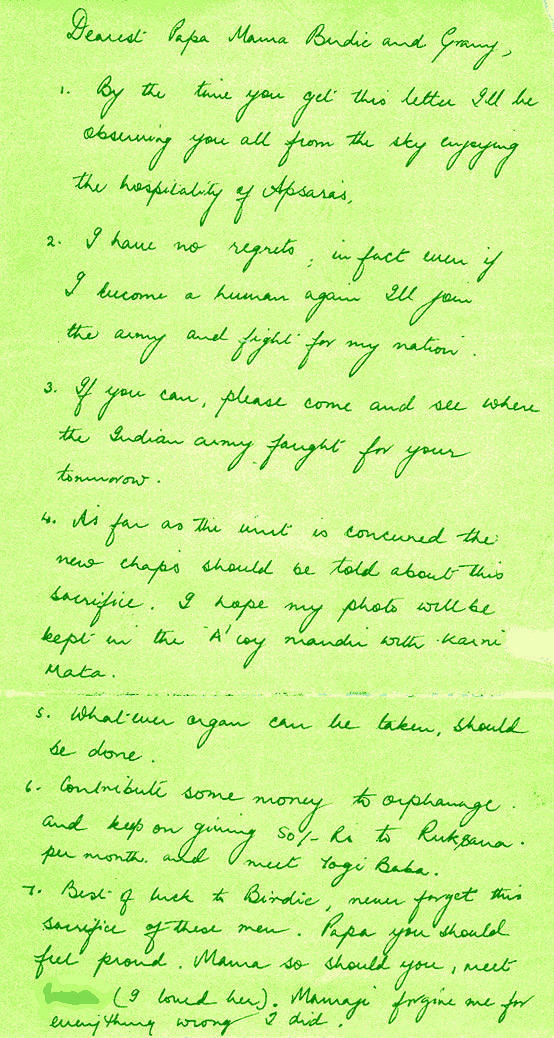 Dearest Papa Mama Birdie and Granny,
1. By the time you get this letter I'll be
observing you all from the sky enjoying
the hospitality of Apsaras,
2. I have no regrets, in fact even if
I become a human again I'll join
the army and fight for my nation.
3. If you can, please come and see where
the Indian army faught for your
tommorow.
4. As far as the unit is concerned the
new chaps should be told about this
sacrifice. I hope my photo will be
kept in the 'A' coy mandir with Karni
Mata.
5. Whatever organ can be taken, should
be done.
6. Contribute some money to orphanage.
and keep on giving 50/- Rs to Ruksana.
per month. and meet Yogi Baba.
7. Best of luck to Birdie, never forget this
sacrifice of these men. Papa you should
feel proud. Mama so should you, meet
(I loved her). Mamaji forgive me for
everything wrong I did.